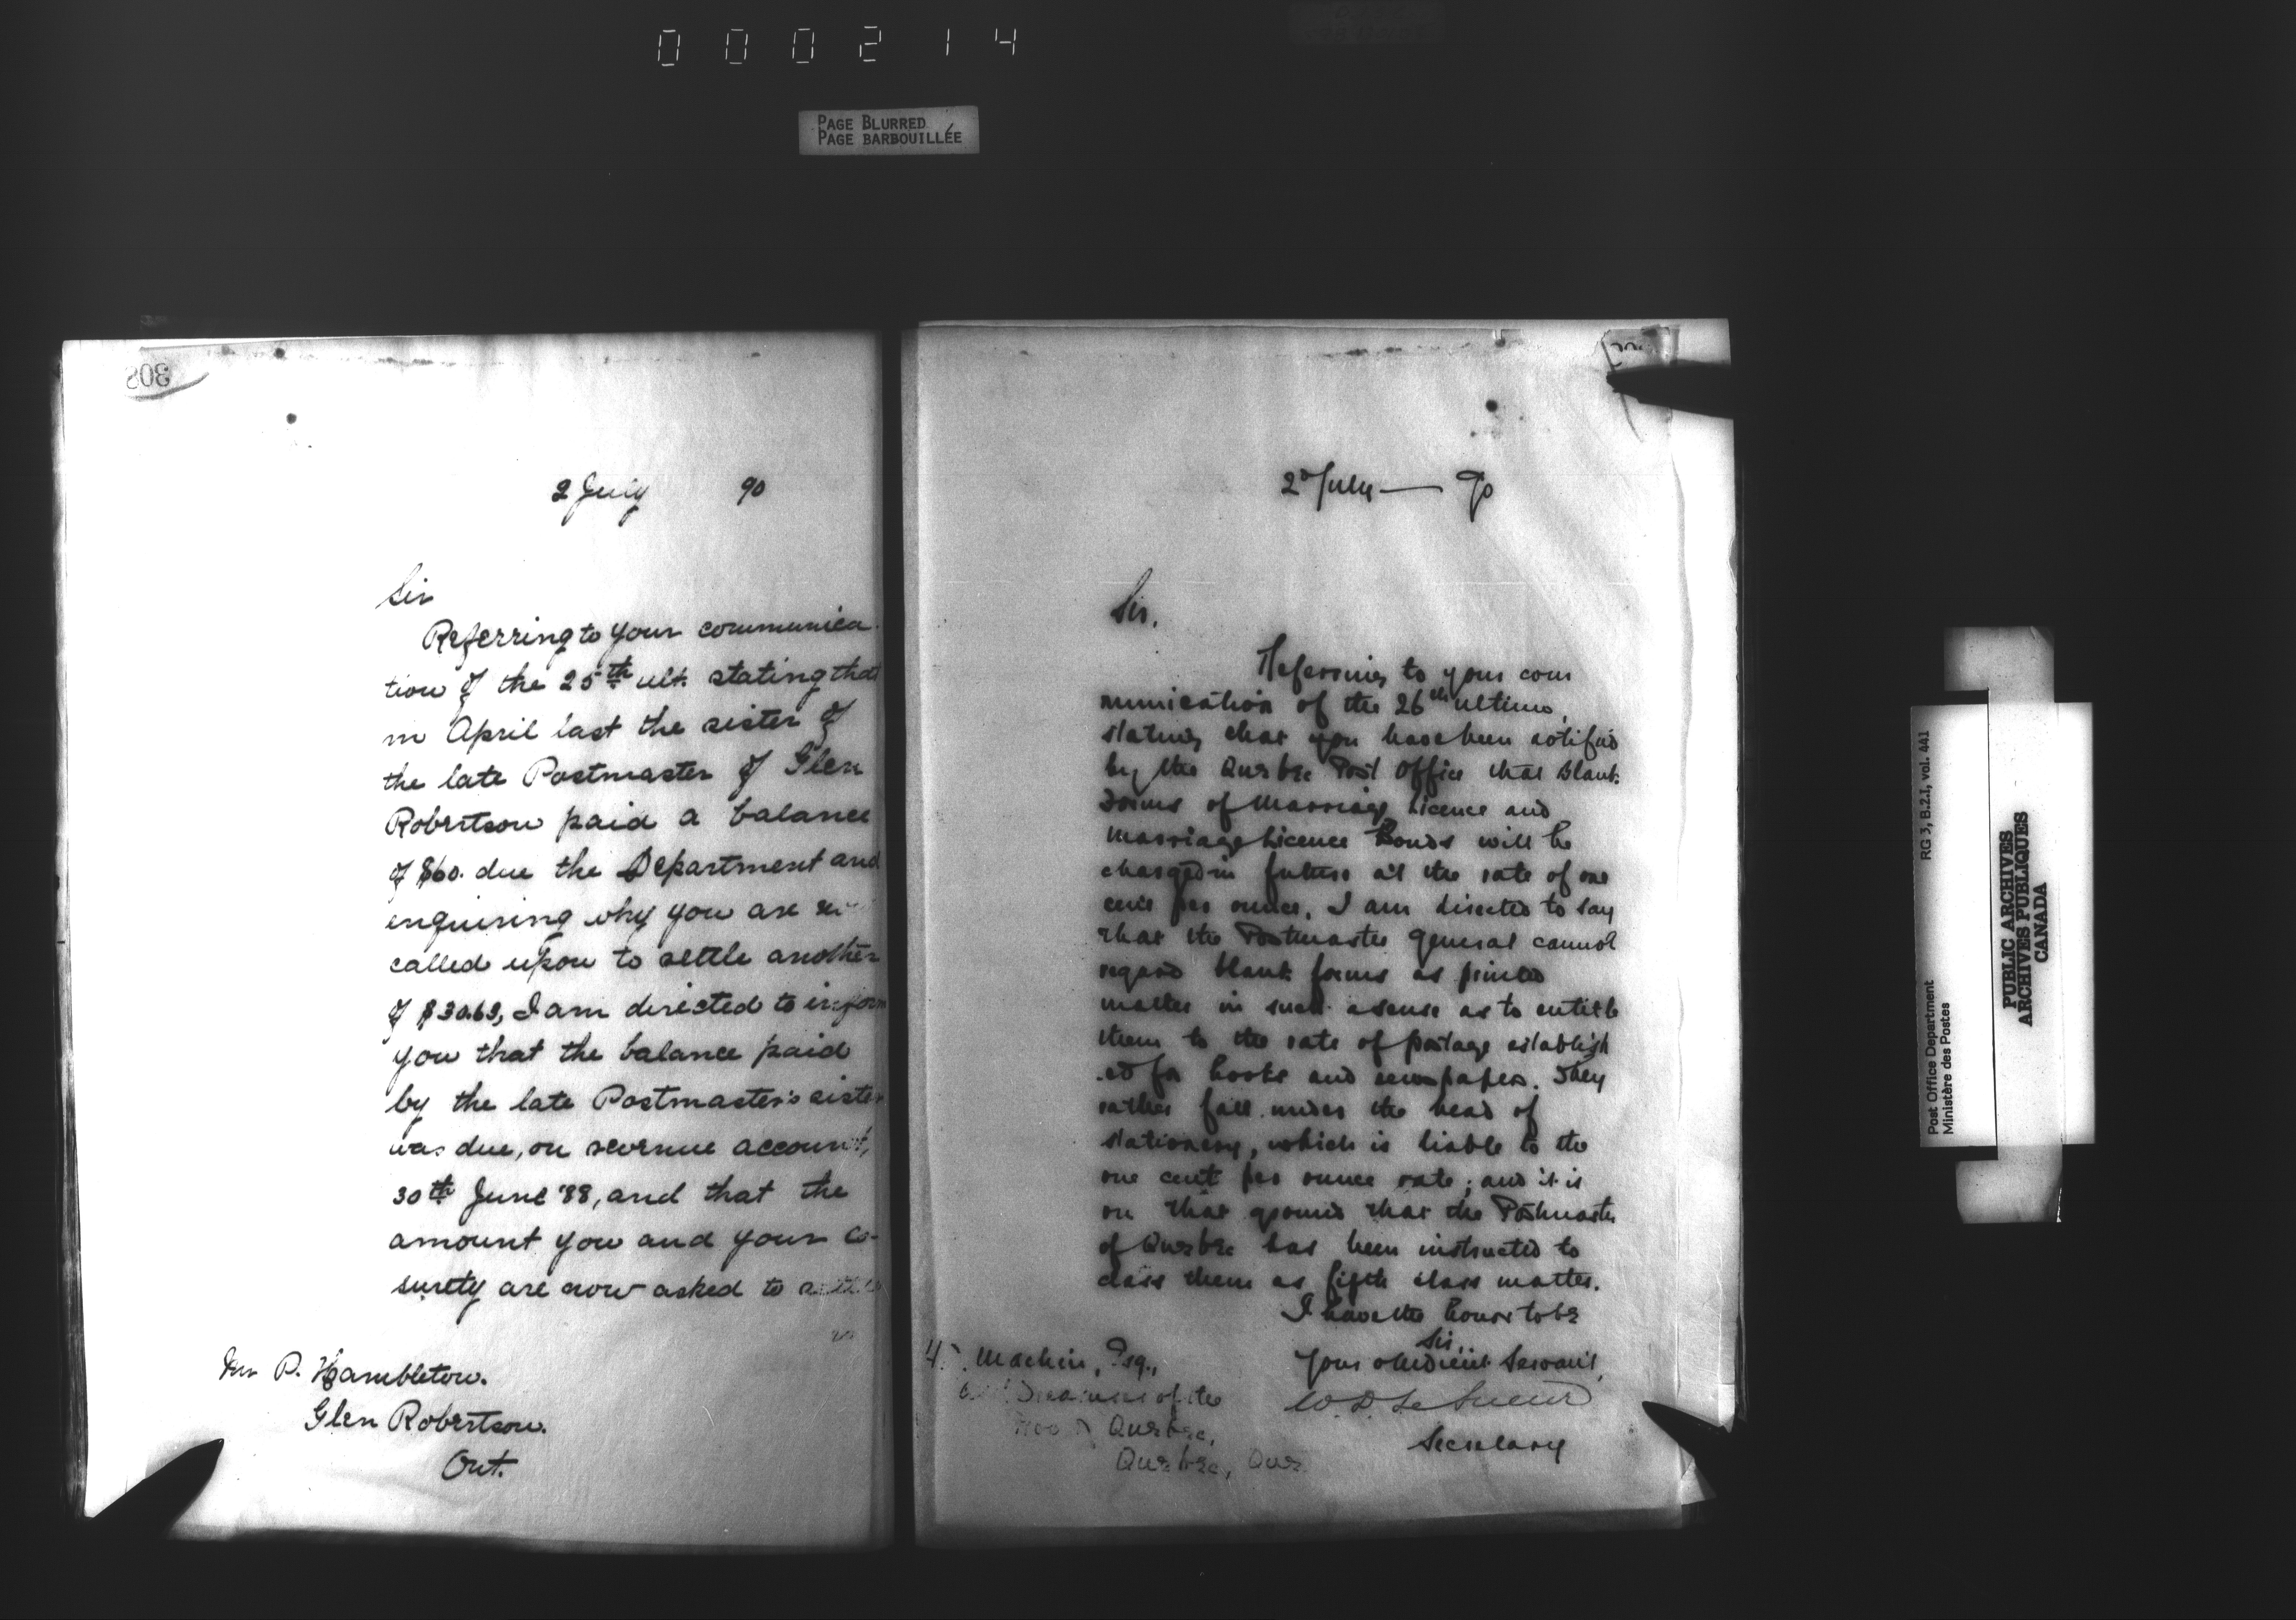 000214
PAGE BLURRED
PAGE BARBOUILLÉE
308
2 July 90
Sir
Referring to your communica
tion of the 25th ult. stating that
in April last the sister of
the late Postmaster of Glen
Robertson paid a balance
of $60. due the Department and
enquiring why you are
called upon to settle another
of $30.63, I am directed to inform
you that the balance paid
by the late Postmaster's sister
was due, on revenue account,
30th June '88, and that the
amount you and your co-
surety are now asked to settle
Mr P. Hambleton.
Glen Robertson.
Ont.
2d July — 90
Sir,
Referring to your com
munication of the 26th ultimo,
stating that you have been notified
by the Quebec Post Office that blank
forms of Marriage Licence and
Marriage Licence Bonds will be
charged in future at the rate of one
cent per ounce, I am directed to say
that the Postmaster General cannot
regard blank forms as printed
matter in such a sense as to entitle
them to the rate of postage establish
ed for books and newspapers. They
rather fall under the head of
stationery, which is liable to the
one cent per ounce rate; and it is
on that ground that the Postmaster
of Quebec has been instructed to
class them as fifth class matter.
I have the honor to be
Sir,
Your obedient Servant,
W. D. Le Sueur
Secretary
Machin, Esq.,
Treasurer of the
Quebec,
Quebec, Que
RG 3, B.2.I, vol. 441
Post Office Department
Ministère des Postes
PUBLIC ARCHIVES
ARCHIVES PUBLIQUES
CANADA